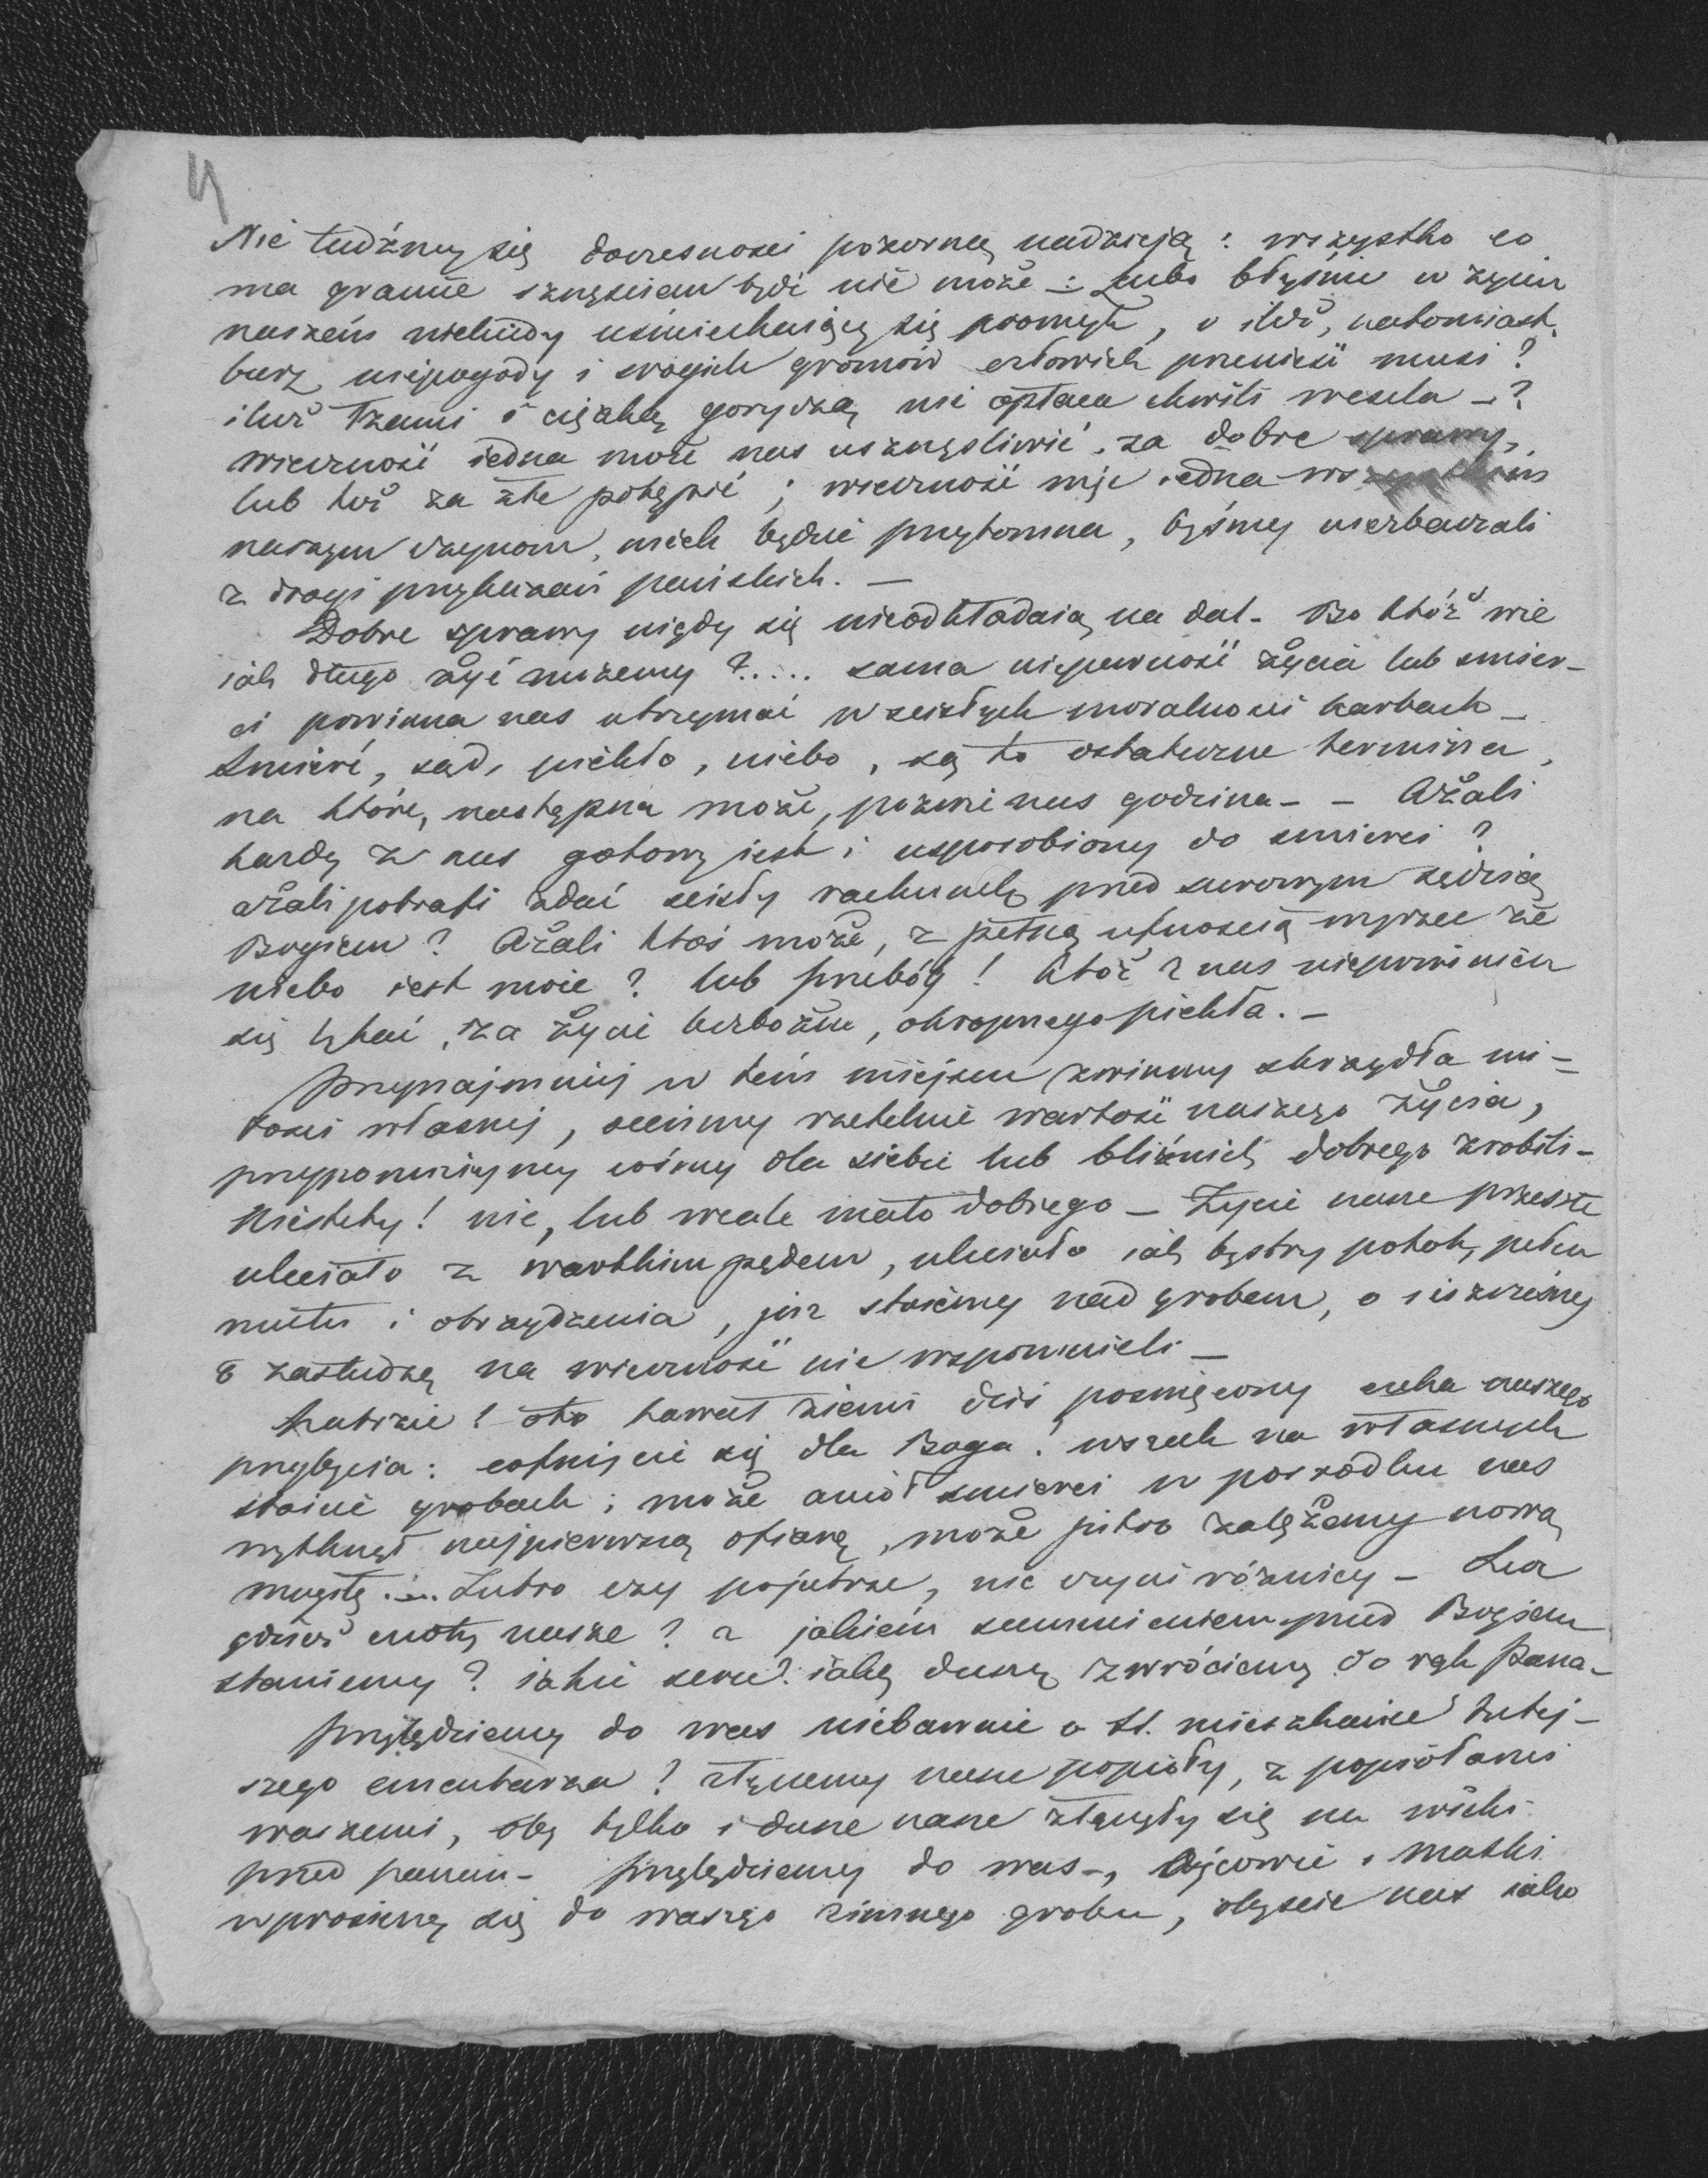 4
Nie łudźmy się doczesności pozorną nadzieją: wszystko co
ma granice szczęściem bydź nie może -: Lubo błyśnie w życiu
naszém niekiedy uśmiechaiący się promyk, o iluż, natomiast,
burz niepogody i srogich gromów człowiek przenieść musi?
iluż łzami i ciężką goryczą nie opłaca chwili wesela -?
wieczność iedna może nas uszczęśliwić, za dobre sprawy,
lub też za złe potępić; wieczność więc iedna wszystkim
naszym czynom, niech będzie przytomna, byśmy niezbaczali
z drogi przykazań pańskich. -
Dobre sprawy nigdy się nieodkładaią na dal - Bo któż wie
iak długo żyć możemy ?..... sama niepewność życia lub śmier-
ci powinna nas utrzymać w ścisłych moralności karbach -
Śmierć, sąd, piekło, niebo, są to ostateczne termina,
na które, następna może, pozwie nas godzina - - Ażali
każdy z nas gotowy iest i usposobiony do śmierci?
ażali potrafi zdać ścisły rachunek przed surowym sędzią
Bogiem? Ażali ktoś może, z pełną ufnością wyrzec że
niebo iest moie? lub przebóg! któż z nas niepowinien
się lękać, za życie bezbożne, okropnego piekła. -
Przynajmniej w tém miejscu zwińmy skrzydła mi-
łości własnej, oceńmy rzetelnie wartość naszego życia,
przypomnijmy cośmy dla siebie lub bliźnich dobrego zrobili -
Niestety! nic, lub wcale mało dobrego - Życie nasze przeszłe
uleciało z wartkim pędem, uleciało iak bystry potok, pełen
mętu i obrzydzenia, już stoiemy nad grobem, a ieszcześmy
o zasłudze na wieczność nie wspomnieli -
Patrzcie! oto kawał ziemi dziś poświęcony czeka naszego
przybycia: cofnijcie się dla Boga! wszak na własnych
stoicie grobach; może anioł śmierci w pośrodku nas
wytknął najpierwszą ofiarę, może jutro zalężemy nową
mogiłę ... Jutro czy pojutrze, nic czyni różnicy - Lecz
gdzież cnoty nasze? z jakiém sumnieniem przed Bogiem
staniemy? iakie serce? iaką duszę zwrócimy do rąk Pana -
Przybędziemy do was niebawnie o SS. mieszkańce tutej-
szego cmentarza? złączemy nasze popioły, z popiołami
waszemi, oby tylko i dusze nasze złączyły się na wieki
przed panem - Przybędziemy do was -, Ojcowie i Matki
wprosiemy się do waszego zimnego grobu, obyście nas iako